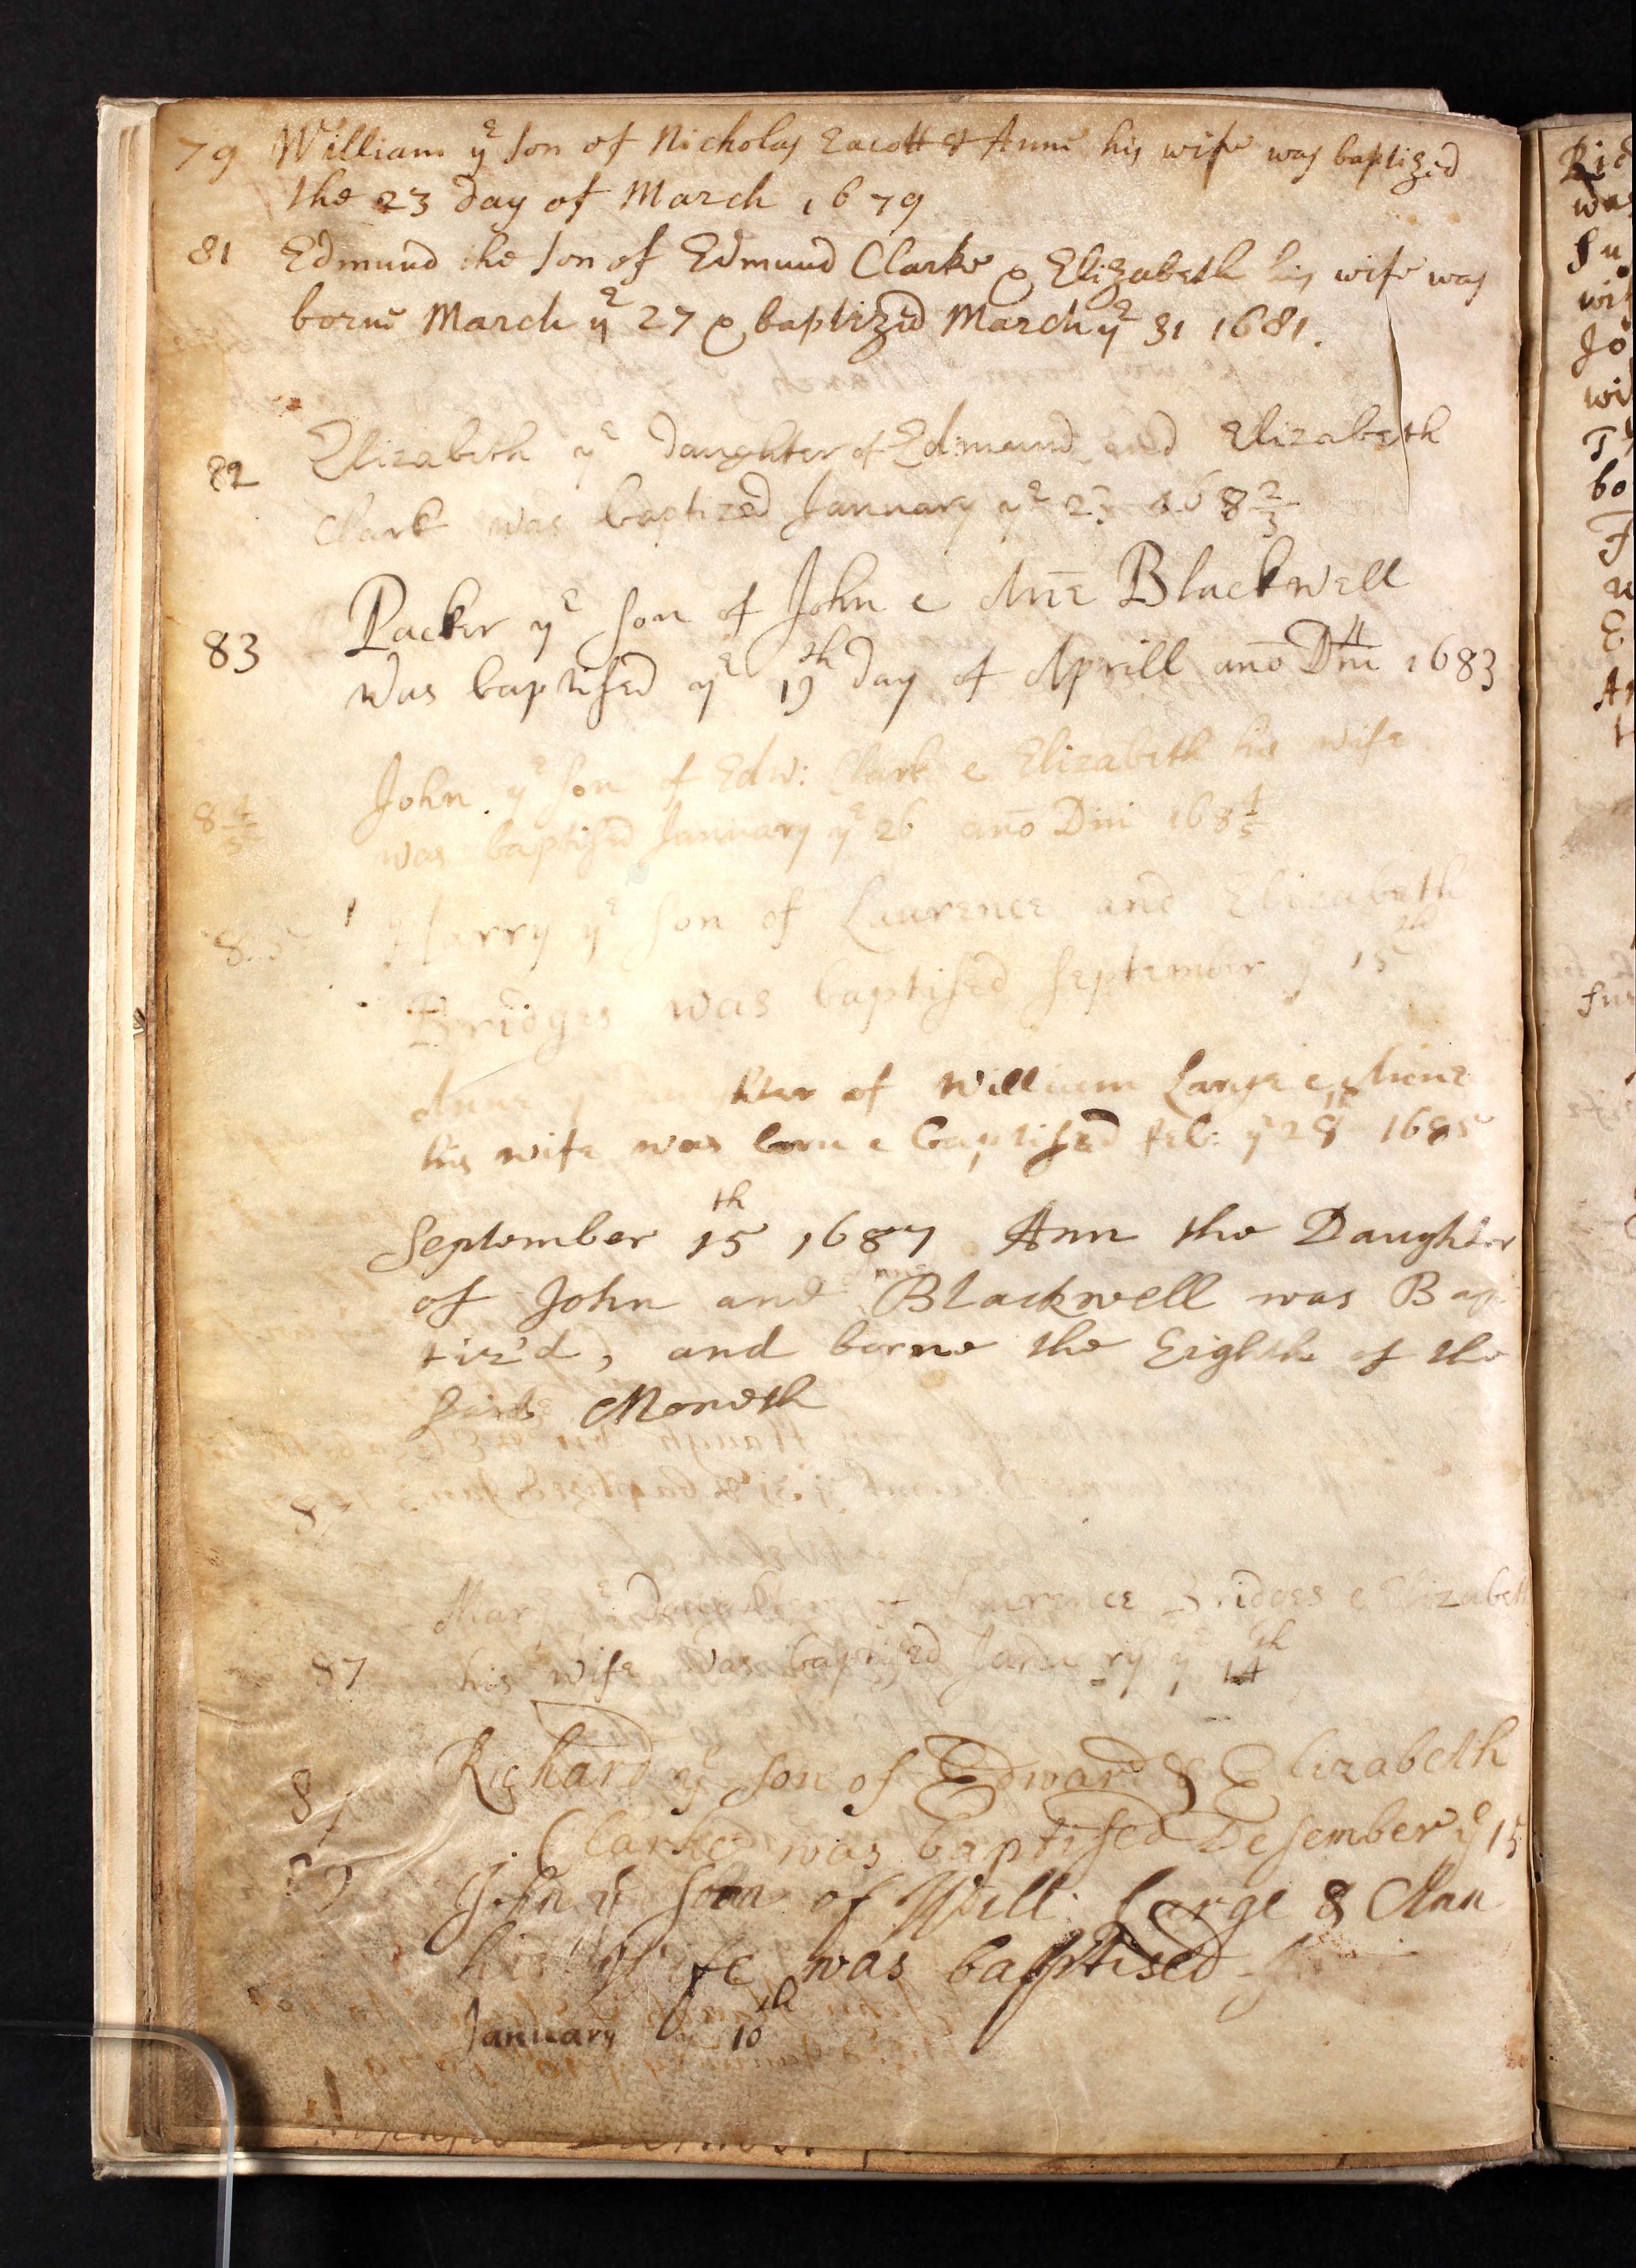 79 William yᵉ son of Nicholas Eacott & Anne his wife was baptized
the 23 day of March 1679
81 Edmund the son of Edmund Clarke & Elizabeth his wife was
borne March yᵉ 27 & baptized March yᵉ 31 1681.
Elizabeth yᵉ daughter of Edmund and Elizabeth
82 Clark was baptized January yᵉ 168 2/3
Packer yᵉ son of John & Anē Blackwell
83 was baptised yᵉ 19th day of Aprill ano Dni 1683
John yᵉ son of Edw: Clark & Elizabeth his wife
8 4/5 was baptised January yᵉ 26 ano Dni 168 4/5
Harry yᵉ son of Laurence and Elizabeth
Bridges was baptised September yᵉ 15th
Anne yᵉ daughter of William Large & Anne
his wife was born & baptised feb: yᵉ 28th 1685
September 15th 1687 Ann the Daughter
of John and Ann Blackwell was Bap
tiz'd, and borne the Eighth of the
said Moneth
87
Mary yᵉ Daughter of Laurence Bridges & Elizabeth
87 his wife was baptised January yᵉ 14th
Richard yᵉ son of Edward & Elizabeth
Clarke was baptised Desember yᵉ 15
John yᵉ sonn of Will: Large & Ann
his wife was baptised
January 10th